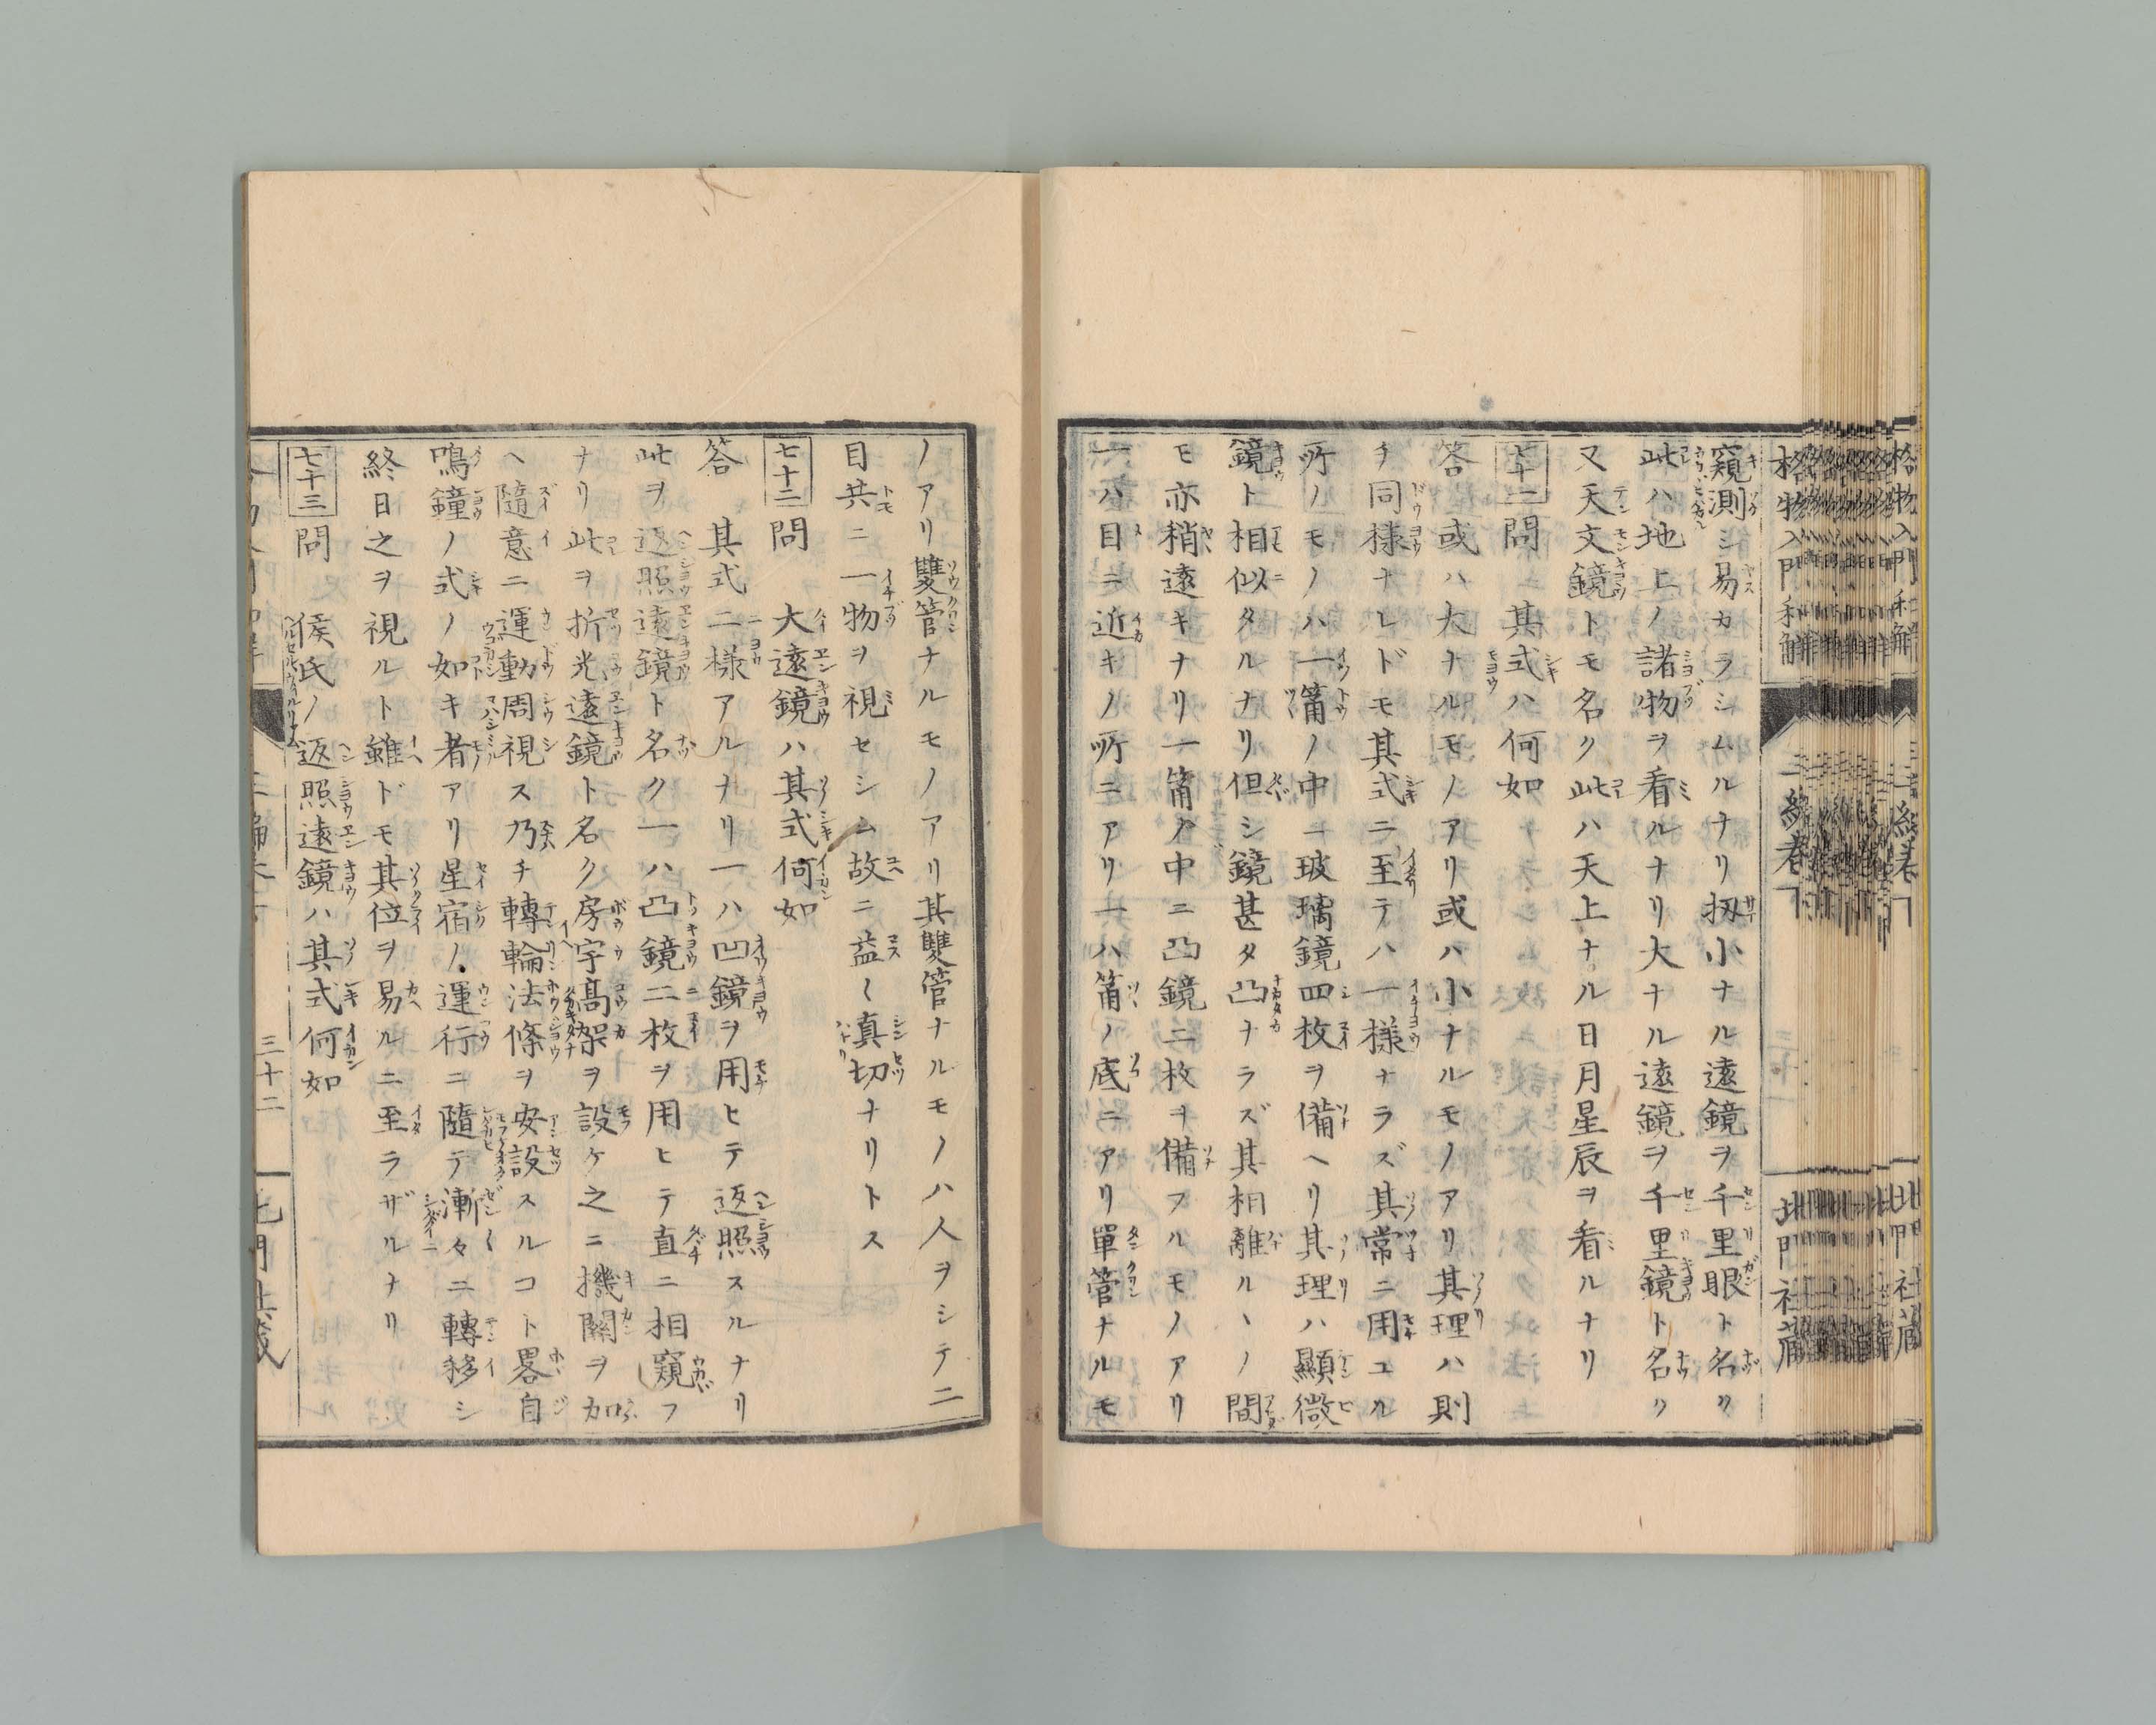 格物入門和解
北門社蔵
窺測シ易カラシムルナリ扨小ナル遠鏡ヲ千里眼ト名ク
此ハ地上ノ諸物ヲ看ルナリ大ナル遠鏡ヲ千里鏡ト名ク
又天文鏡トモ名ク此ハ天上ナル日月星辰ヲ看ルナリ
七十一問 其式ハ何如
答 或ハ大ナルモノアリ或ハ小ナルモノアリ其理ハ則
チ同様ナレドモ其式ニ至テハ一様ナラズ其常ニ用ユル
所ノモノハ一筩ノ中ニ玻璃鏡四枚ヲ備ヘリ其理ハ顯微
鏡ト相似タルナリ但シ鏡甚タ凸ナラズ其相離ルヽノ間
モ亦稍遠キナリ一筩ノ中ニ凸鏡二枚ヲ備フルモノアリ
一ハ目ニ近キノ所ニアリ一ハ筩ノ底ニアリ單管ナルモ
ノアリ雙管ナルモノアリ其雙管ナルモノハ人ヲシテ二
目共ニ一物ヲ視セシム故ニ益〱真切ナリトス
七十二問 大遠鏡ハ其式何如
答 其式二樣アルナリ一ハ凹鏡ヲ用ヒテ返照スルナリ
此ヲ返照遠鏡ト名ク一ハ凸鏡二枚ヲ用ヒテ直ニ相窺フ
ナリ此ヲ折光遠鏡ト名ク房宇高架ヲ設ケ之ニ機關ヲ加
ヘ隨意ニ運動周視ス乃チ轉輪法條ヲ安設スルコト畧自
鳴鐘ノ式ノ如キ者アリ星宿ノ運行ニ隨テ漸々ニ轉移シ
終日之ヲ視ルト雖ドモ其位ヲ易ルニ至ラザルナリ
七十三問 侯氏ノ返照遠鏡ハ其式何如
三十二